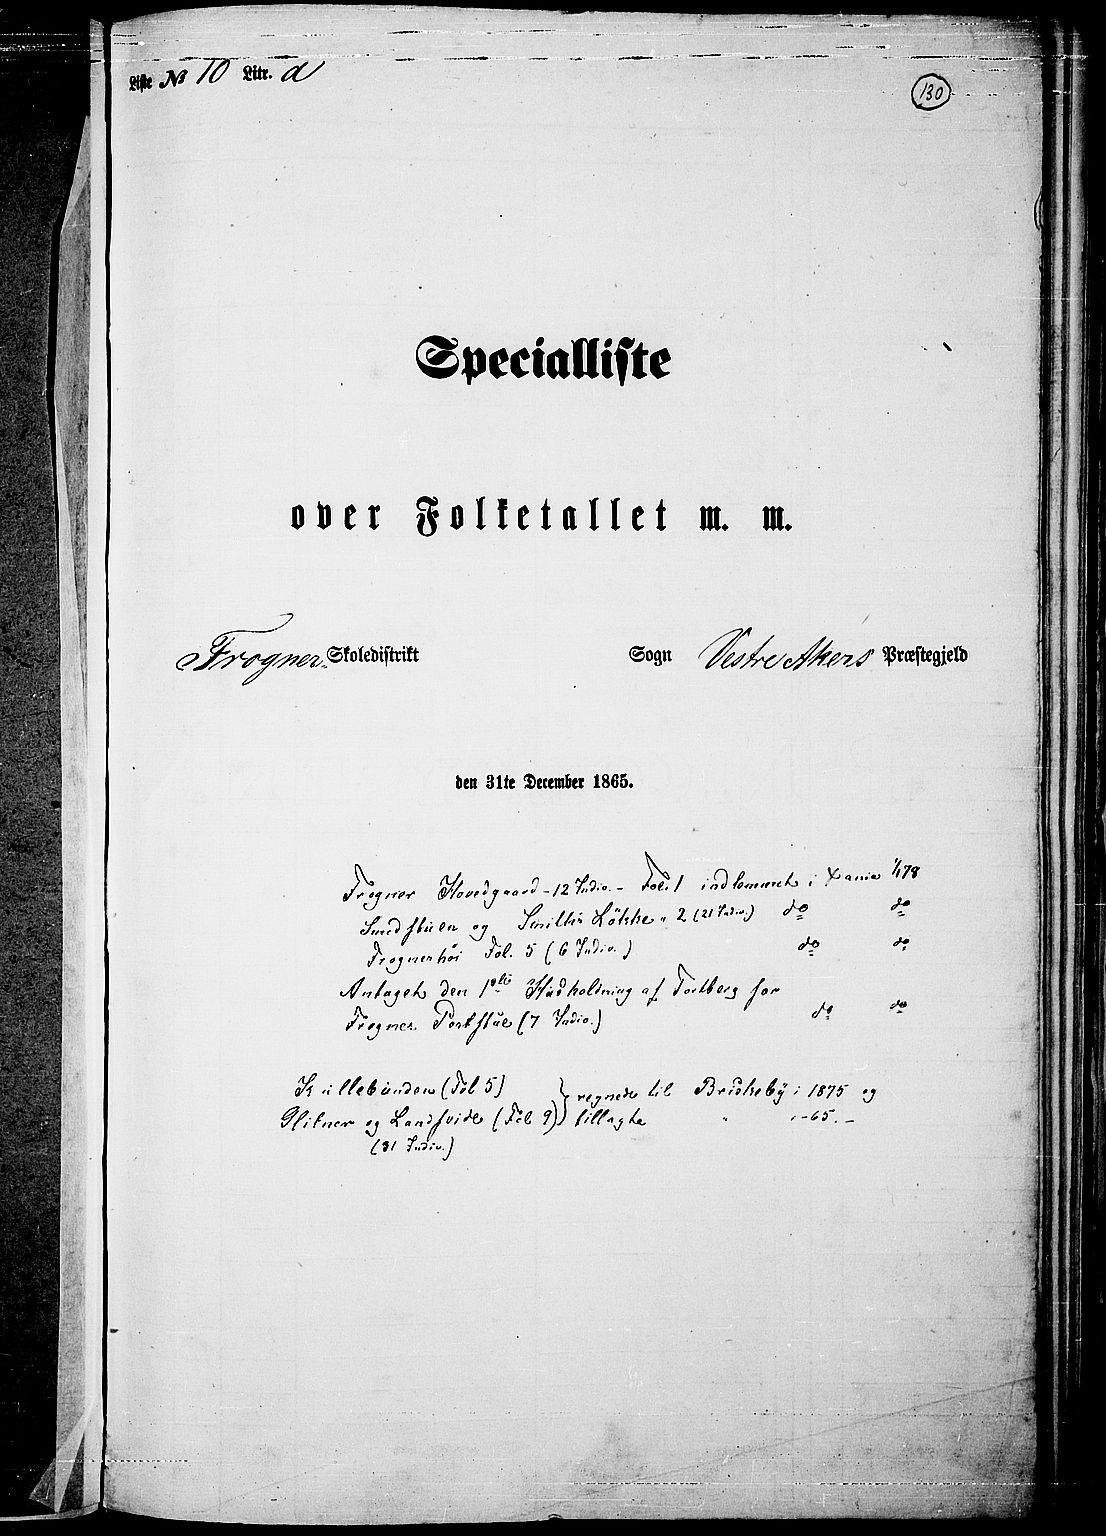 Liste № 10 Litr. a
130
Specialliste
over Folketallet m. m.
Frogner Skoledistrikt Sogn Vestre Akers Præstegjeld
den 31te December 1865.
Frogner Hovedgaard - 12 Indiv. - Fol. 1 indlemmet i Xania 1/1 78
Smedstuen og Smiths Løkke " 2 (21 Indiv.) do do
Frognerhøi Fol. 5 (6 Indiv.) do do
Antaget den 1ste Husholdning af Tortberg for
Frogner Portstue (7 Indiv.) do do
Kullebunden (Fol 5) } regnede til Briskeby i 1875 og
Glitner og Landfvide (Fol 9) } tillagte " i -65. -
(31 Indiv.)